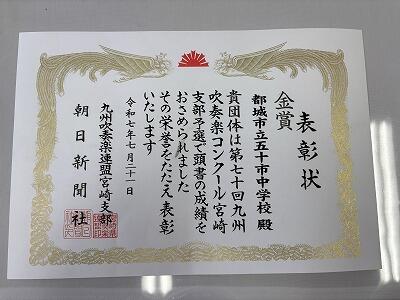 表彰状
金賞
都城市立五十市中学校 殿
貴団体は第七十回九州
吹奏楽コンクール宮崎
支部予選で頭書の成績を
おさめられました
その栄誉をたたえ表彰
いたします
令和七年七月二十一日
九州吹奏楽連盟宮崎支部
朝日新聞社